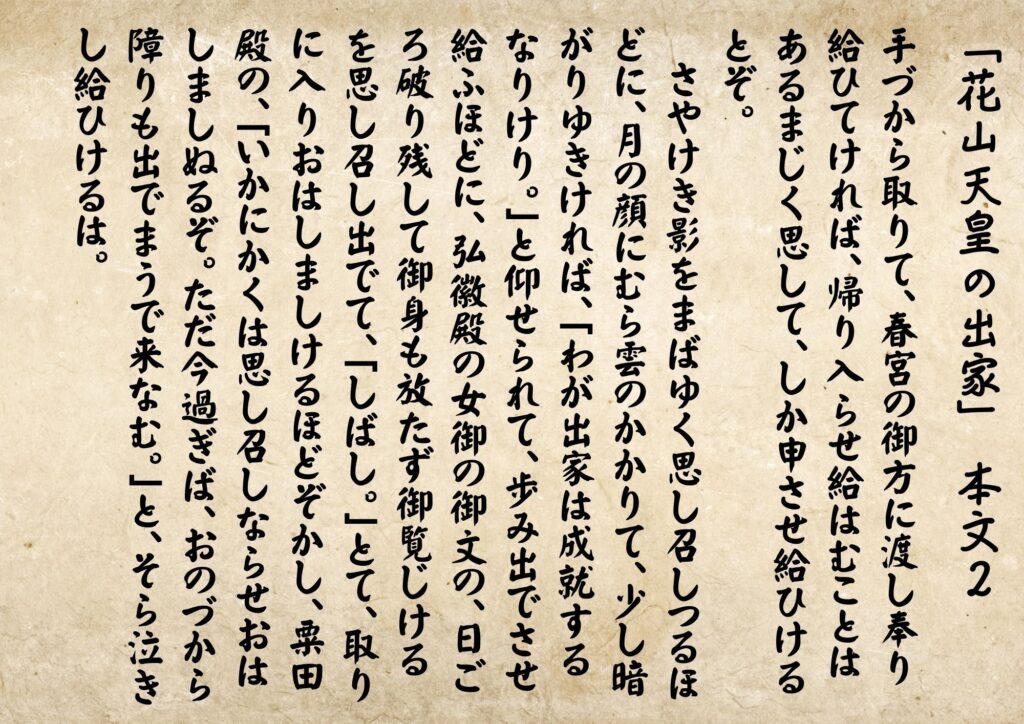 「花山天皇の出家」　本文２
手づから取りて、春宮の御方に渡し奉り
給ひてければ、帰り入らせ給はむことは
あるまじく思して、しか申させ給ひける
とぞ。
　さやけき影をまばゆく思し召しつるほ
どに、月の顔にむら雲のかかりて、少し暗
がりゆきければ、「わが出家は成就する
なりけり。」と仰せられて、歩み出でさせ
給ふほどに、弘徽殿の女御の御文の、日ご
ろ破り残して御身も放たず御覧じける
を思し召し出でて、「しばし。」とて、取り
に入りおはしましけるほどぞかし、粟田
殿の、「いかにかくは思し召しならせおは
しましぬるぞ。ただ今過ぎば、おのづから
障りも出でまうで来なむ。」と、そら泣き
し給ひけるは。